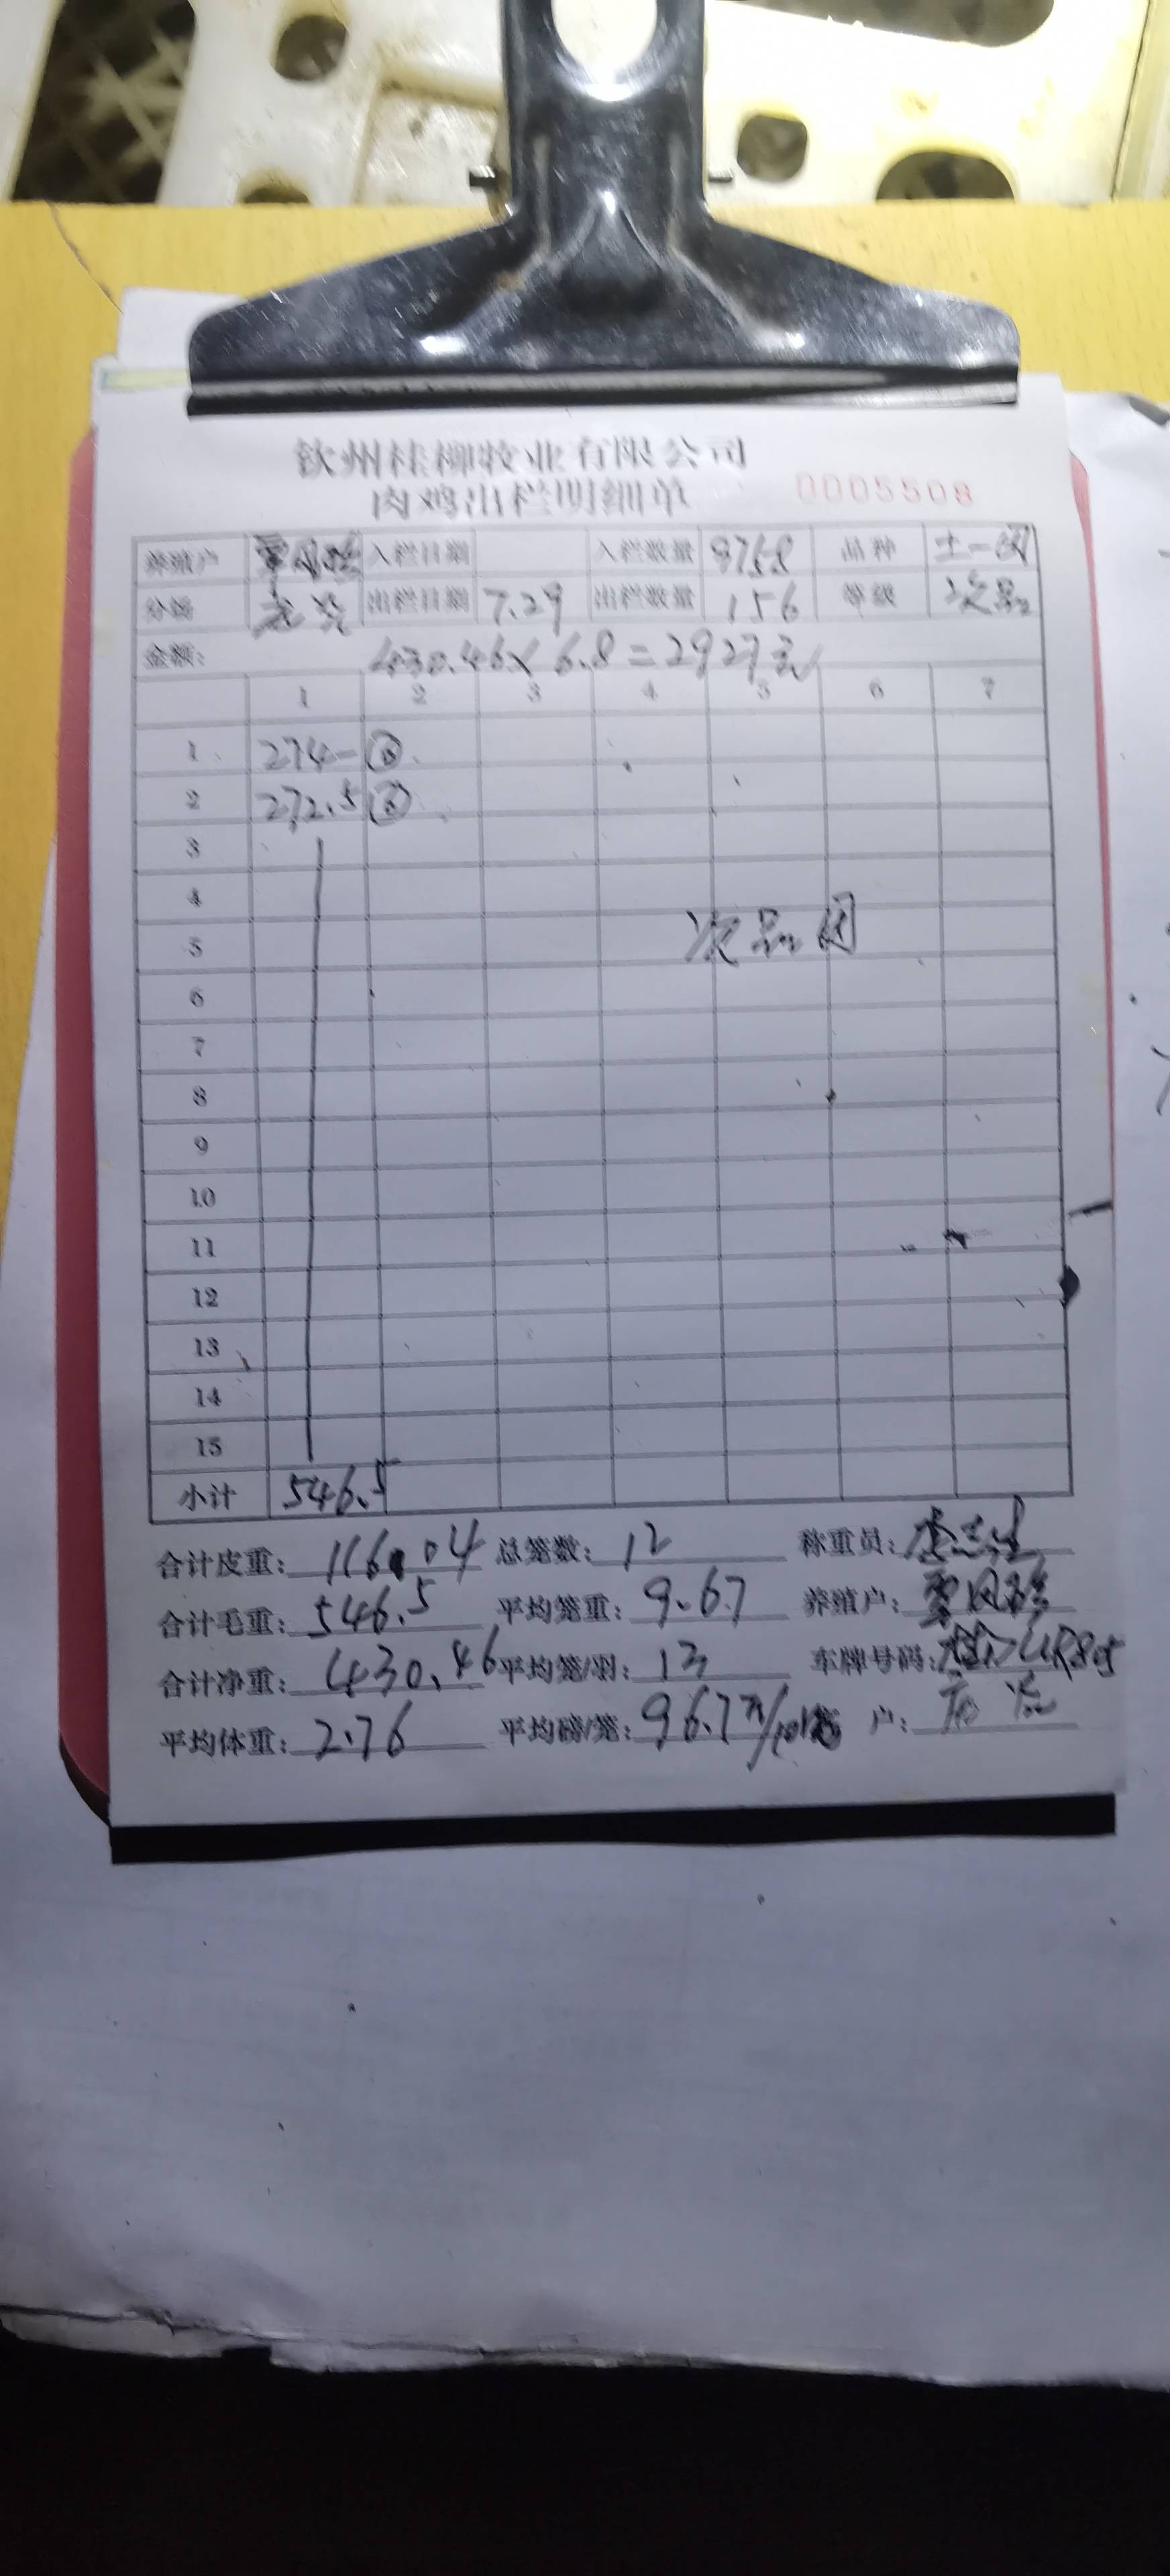 钦州桂柳牧业有限公司
肉鸡出栏明细单 0005508
养殖户 覃凤 入栏日期 入栏数量 9758 品种 土一
分场 出栏日期 7.29 出栏数量 156 等级 次品
金额: 430.46×6.8=2927元
1 2 3 4 5 6 7
1 274-⑥
2 272.5⑥
3
4
5 次品
6
7
8
9
10
11
12
13
14
15
小计 546.5
合计皮重: 116.04 总笼数: 12 称重员:
合计毛重: 546.5 平均笼重: 9.67 养殖户: 覃凤
合计净重: 430.46 平均笼/羽: 13 车牌号码:
平均体重: 2.76 平均磅/笼: 96.7 户: